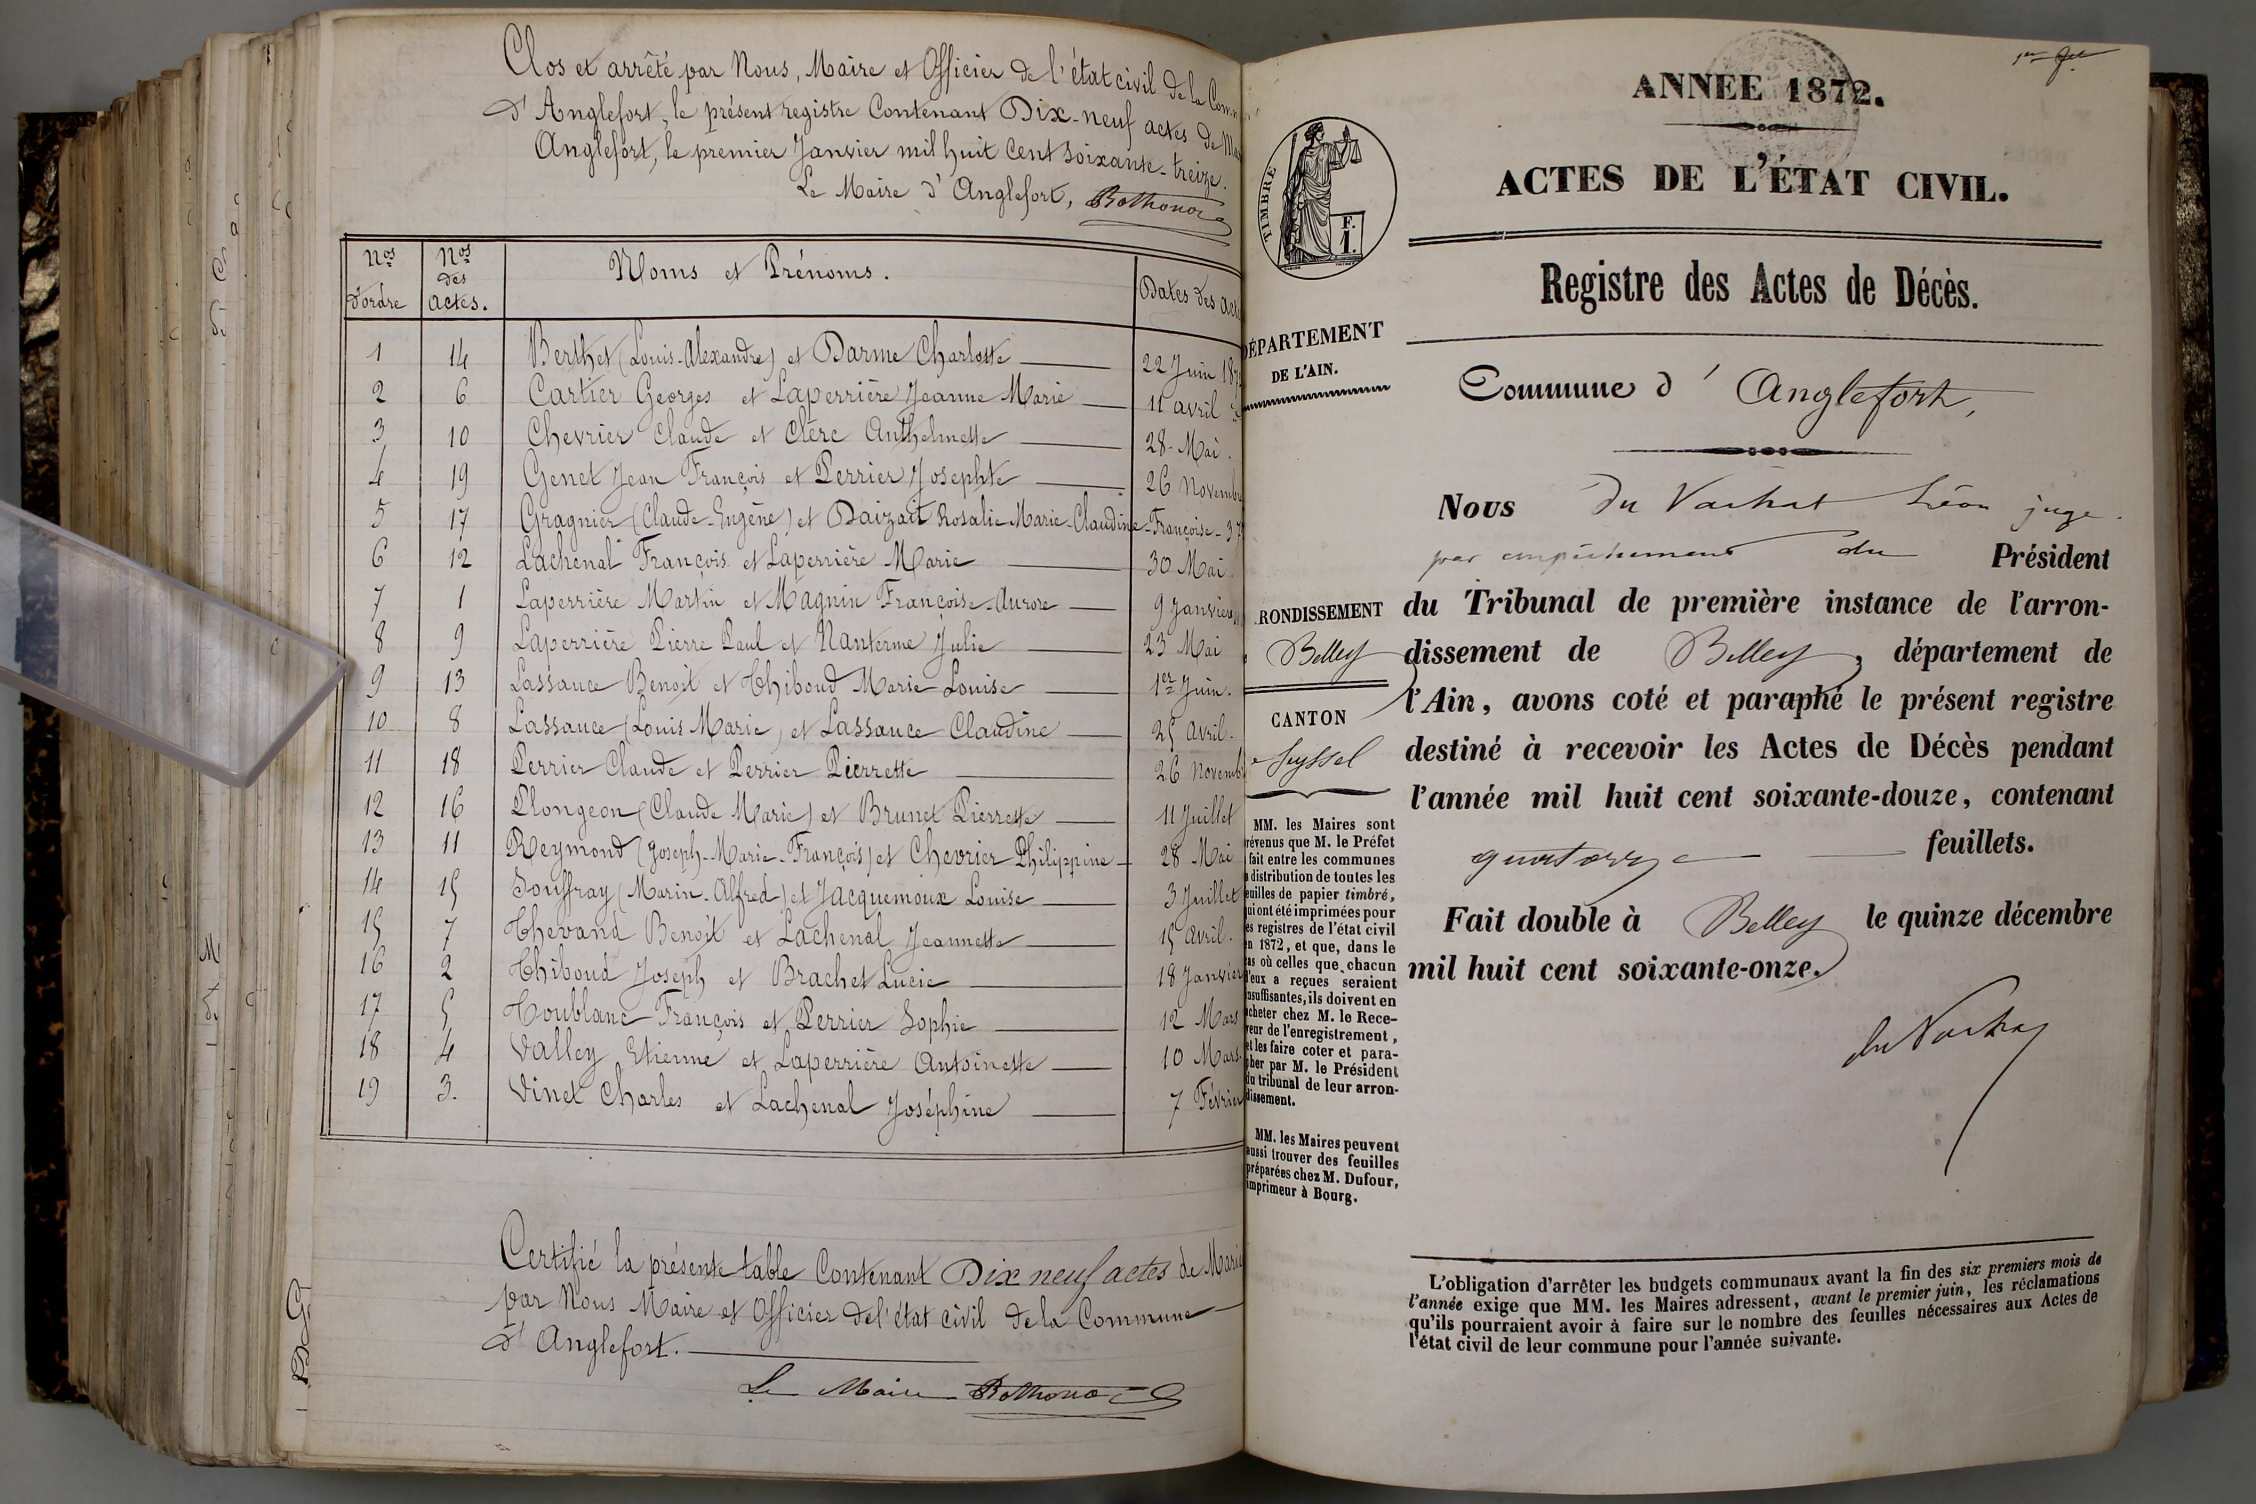 Clos et arrêté par Nous, Maire et Officier de l'état civil de la Comm
d'Anglefort, le présent registre Contenant Dix-neuf actes de Ma
Anglefort, le premier Janvier mil huit Cent soixante-treize.
Le Maire d'Anglefort, Bothonor
Nos d'ordre
Nos des actes.
Noms et Prénoms.
Dates des act
1 14 Berthet (Louis-Alexandre) et Darme Charlotte 22 Juin 187
2 6 Cartier Georges et Laperrière Jeanne Marie 11 avril
3 10 Chevrier Claude et Clerc Anthelmette 28 Mai.
4 19 Genet Jean François et Perrier Josephte 26 Novembre
5 17 Gragnier (Claude-Eugène) et Daizait Rosalie Marie-Claudine-Françoise - 3
6 12 Lachenal François et Laperrière Marie 30 Mai
7 1 Laperrière Martin et Magnin Françoise-Aurore 9 Janvier
8 9 Laperrière Pierre Paul et Nanterme Julie 23 Mai
9 13 Lassauce Benoît et Thiboud Marie Louise 1er Juin.
10 8 Lassauce (Louis Marie) et Lassauce Claudine 25 avril.
11 18 Perrier Claude et Perrier Pierrette 26 Novemb
12 16 Plongeon (Claude Marie) et Brunet Pierrette 11 Juillet
13 11 Reymond (Joseph-Marie-François) et Chevrier Philippine 28 Mai
14 15 Souffray (Marin-Alfred) et Jacquemoux Louise 3 Juillet
15 7 Thevand Benoît et Lachenal Jeannette 15 avril.
16 2 Thiboud Joseph et Brachet Lucie 18 Janvier
17 5 Toublanc François et Perrier Sophie 12 Mars
18 4 Valley Etienne et Laperrière Antoinette 10 Mars.
19 3. Vinet Charles et Lachenal Joséphine 7 Février
Certifié la présente table Contenant Dix neuf actes de Maria
par Nous Maire et Officier de l'état civil de la Commune
d'Anglefort.
Le Maire Bothonor
1er fet
ANNÉE 1872.
ACTES DE L'ÉTAT CIVIL.
TIMBRE
F.
1.
Registre des Actes de Décès.
DÉPARTEMENT
DE L'AIN.
Commune d'Anglefort,
Nous Du Vachat Léon juge
par empêchement du Président
RONDISSEMENT
Belley
CANTON
Seyssel
du Tribunal de première instance de l'arron-
dissement de Belley, département de
l'Ain, avons coté et paraphé le présent registre
destiné à recevoir les Actes de Décès pendant
l'année mil huit cent soixante-douze, contenant
quatorze feuillets.
Fait double à Belley le quinze décembre
mil huit cent soixante-onze.
du Vachat
MM. les Maires sont
révenus que M. le Préfet
fait entre les communes
a distribution de toutes les
euilles de papier timbré,
ui ont été imprimées pour
es registres de l'état civil
n 1872, et que, dans le
as où celles que chacun
d'eux a reçues seraient
nsuffisantes, ils doivent en
acheter chez M. le Rece-
veur de l'enregistrement,
et les faire coter et para-
pher par M. le Président
du tribunal de leur arron-
dissement.
MM. les Maires peuvent
aussi trouver des feuilles
préparées chez M. Dufour,
imprimeur à Bourg.
L'obligation d'arrêter les budgets communaux avant la fin des six premiers mois de
l'année exige que MM. les Maires adressent, avant le premier juin, les réclamations
qu'ils pourraient avoir à faire sur le nombre des feuilles nécessaires aux Actes de
l'état civil de leur commune pour l'année suivante.